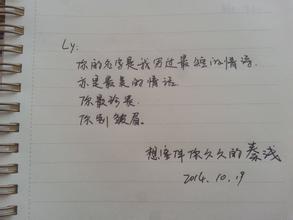 Ly:
你的名字是我写过最短的情诗.
亦是最美的情话.
你最珍贵.
你别皱眉.
想陪伴你久久的秦浅
2014.10.19